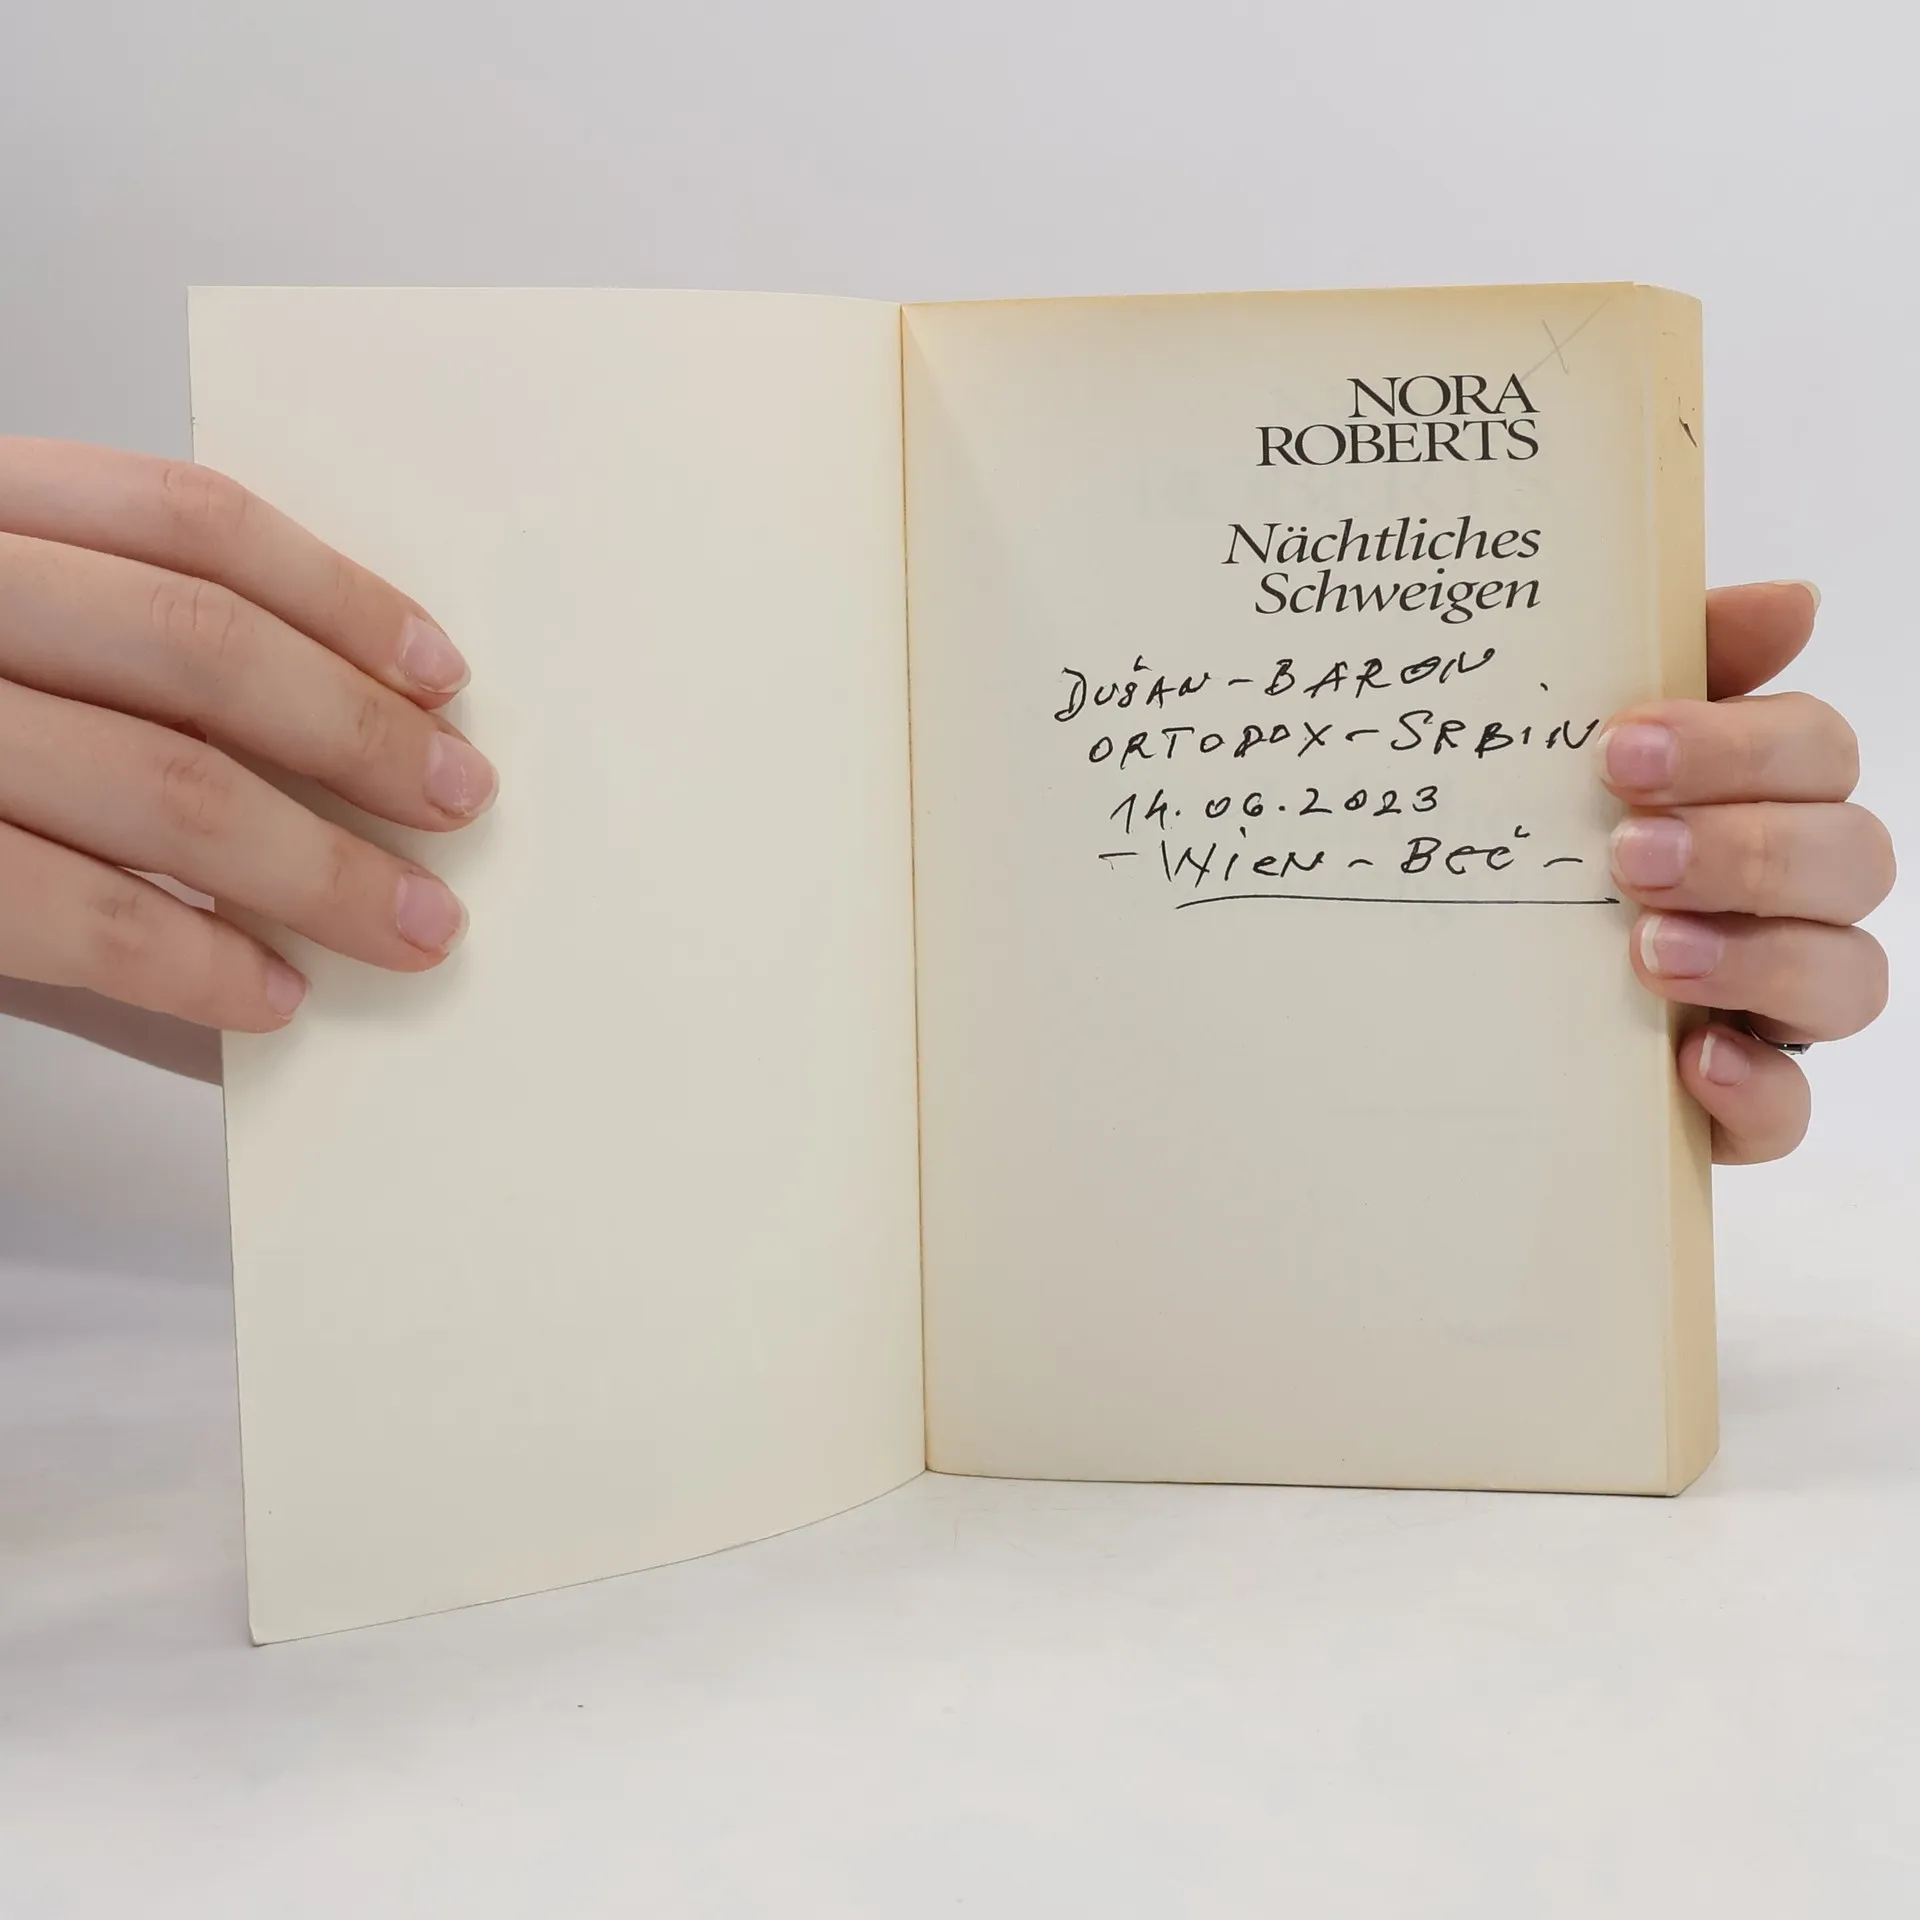 NORA
ROBERTS
Nächtliches
Schweigen
DUŠAN - BARON
ORTODOX - SRBIN
14.06.2023
- WieN - BEČ -